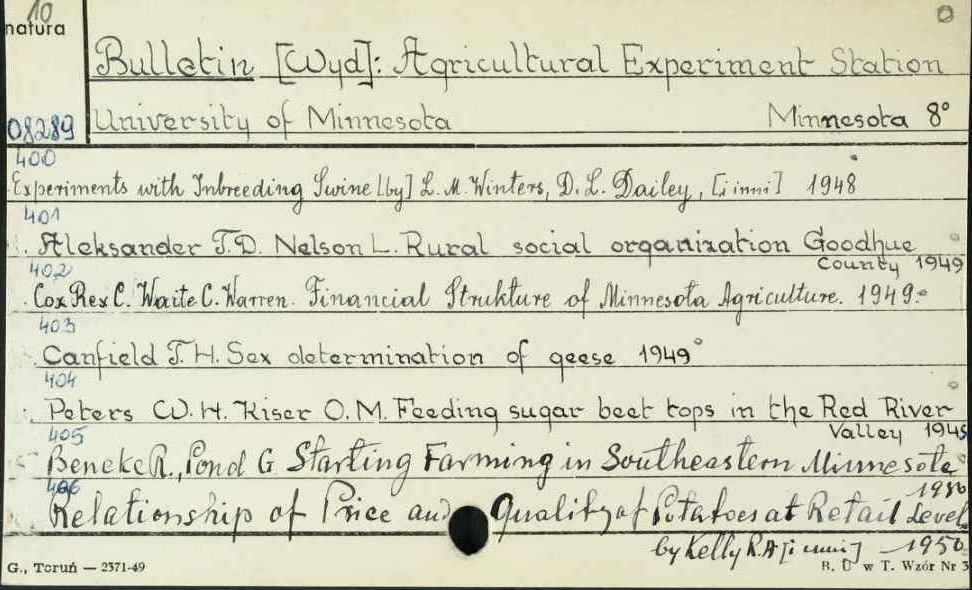 10
natura
Bulletin [Wyd]: Agricultural Experiment Station
08289 University of Minnesota Minnesota 8°
400
Experiments with Inbreeding Swine [by] L. M. Winters, D. L. Dailey, [i inni] 1948
401
Aleksander T. D. Nelson L. Rural social organization Goodhue
County 1949
402
Cox Rex C. Waite C. Warren. Financial Strukture of Minnesota Agriculture. 1949.
403
Canfield T. H. Sex determination of geese 1949
404
Peters W. H. Kiser O. M. Feeding sugar beet tops in the Red River
Valley 1945
405
Beneke R., Pond G. Starting Farming in Southeastern Minnesota
1950
406
Relationship of Price and Quality of Potatoes at Retail Level
by Kelly R. A [i inni] 1950
G., Toruń — 2371-49 B. U w T. Wzór Nr 3